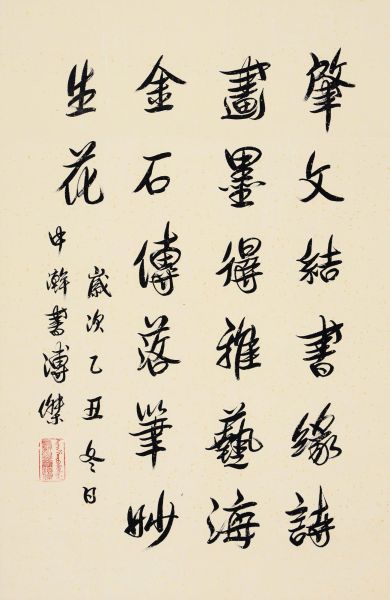 肇文結書緣詩
畫墨得雅藝海
金石傳落筆妙
生花
歲次乙丑冬日
中澣書溥傑